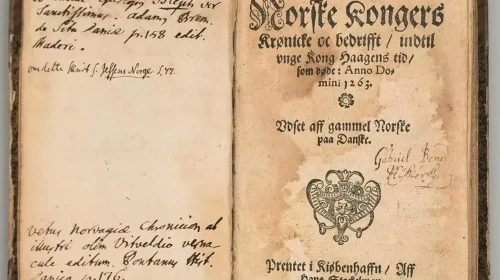 Sanctissimus. adam. Brem.
de Situ Daniæ p.158 edit.
Maderi.
om dette skrift S. Jessens Norge S. 77.
vetus Norvagiæ Chronicion ab
illustri olim Vitveldio verna
cule editum. Pontanus Hist.
Danica p. 176.
Norske Kongers
Krønicke oc bedrifft / indtil
vnge Kong Haagens tid /
som døde: Anno Do-
mini 1263.
Vdset aff gammel Norske
paa Danske.
Gabriel
Prentet i Kiøbenhaffn / Aff
Hans